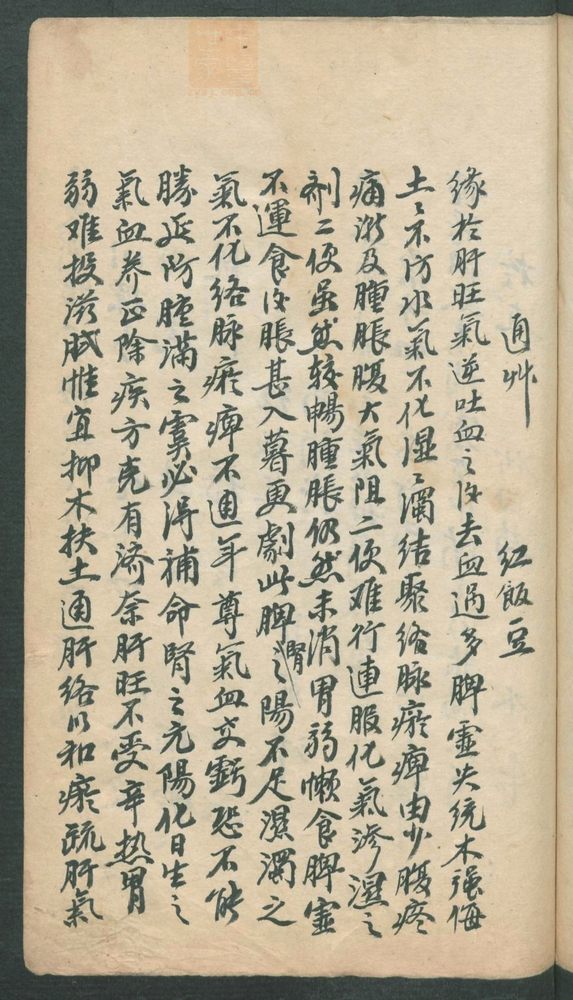 通艸 紅飯豆
緣於肝旺氣逆吐血之后去血過多脾虛失統木強侮
土土不防水氣不化湿湿濁結聚絡脉瘀痺由少腹疼
痛漸及腫脹腹大氣阻二便难行連服化氣滲濕之
劑二便虽然較暢腫脹仍然未消胃弱懒食脾虛
不運食后脹甚入暮更劇此脾腎之陽不足濕濁之
氣不化絡脉瘀痺不通年尊氣血交虧恐不能
勝延防腫滿之虞必得補命腎之元陽化日生之
氣血养正除疾方克有济奈肝旺不受辛热胃
弱难投滋膩惟宜抑木扶土通肝絡以和瘀疏肝氣